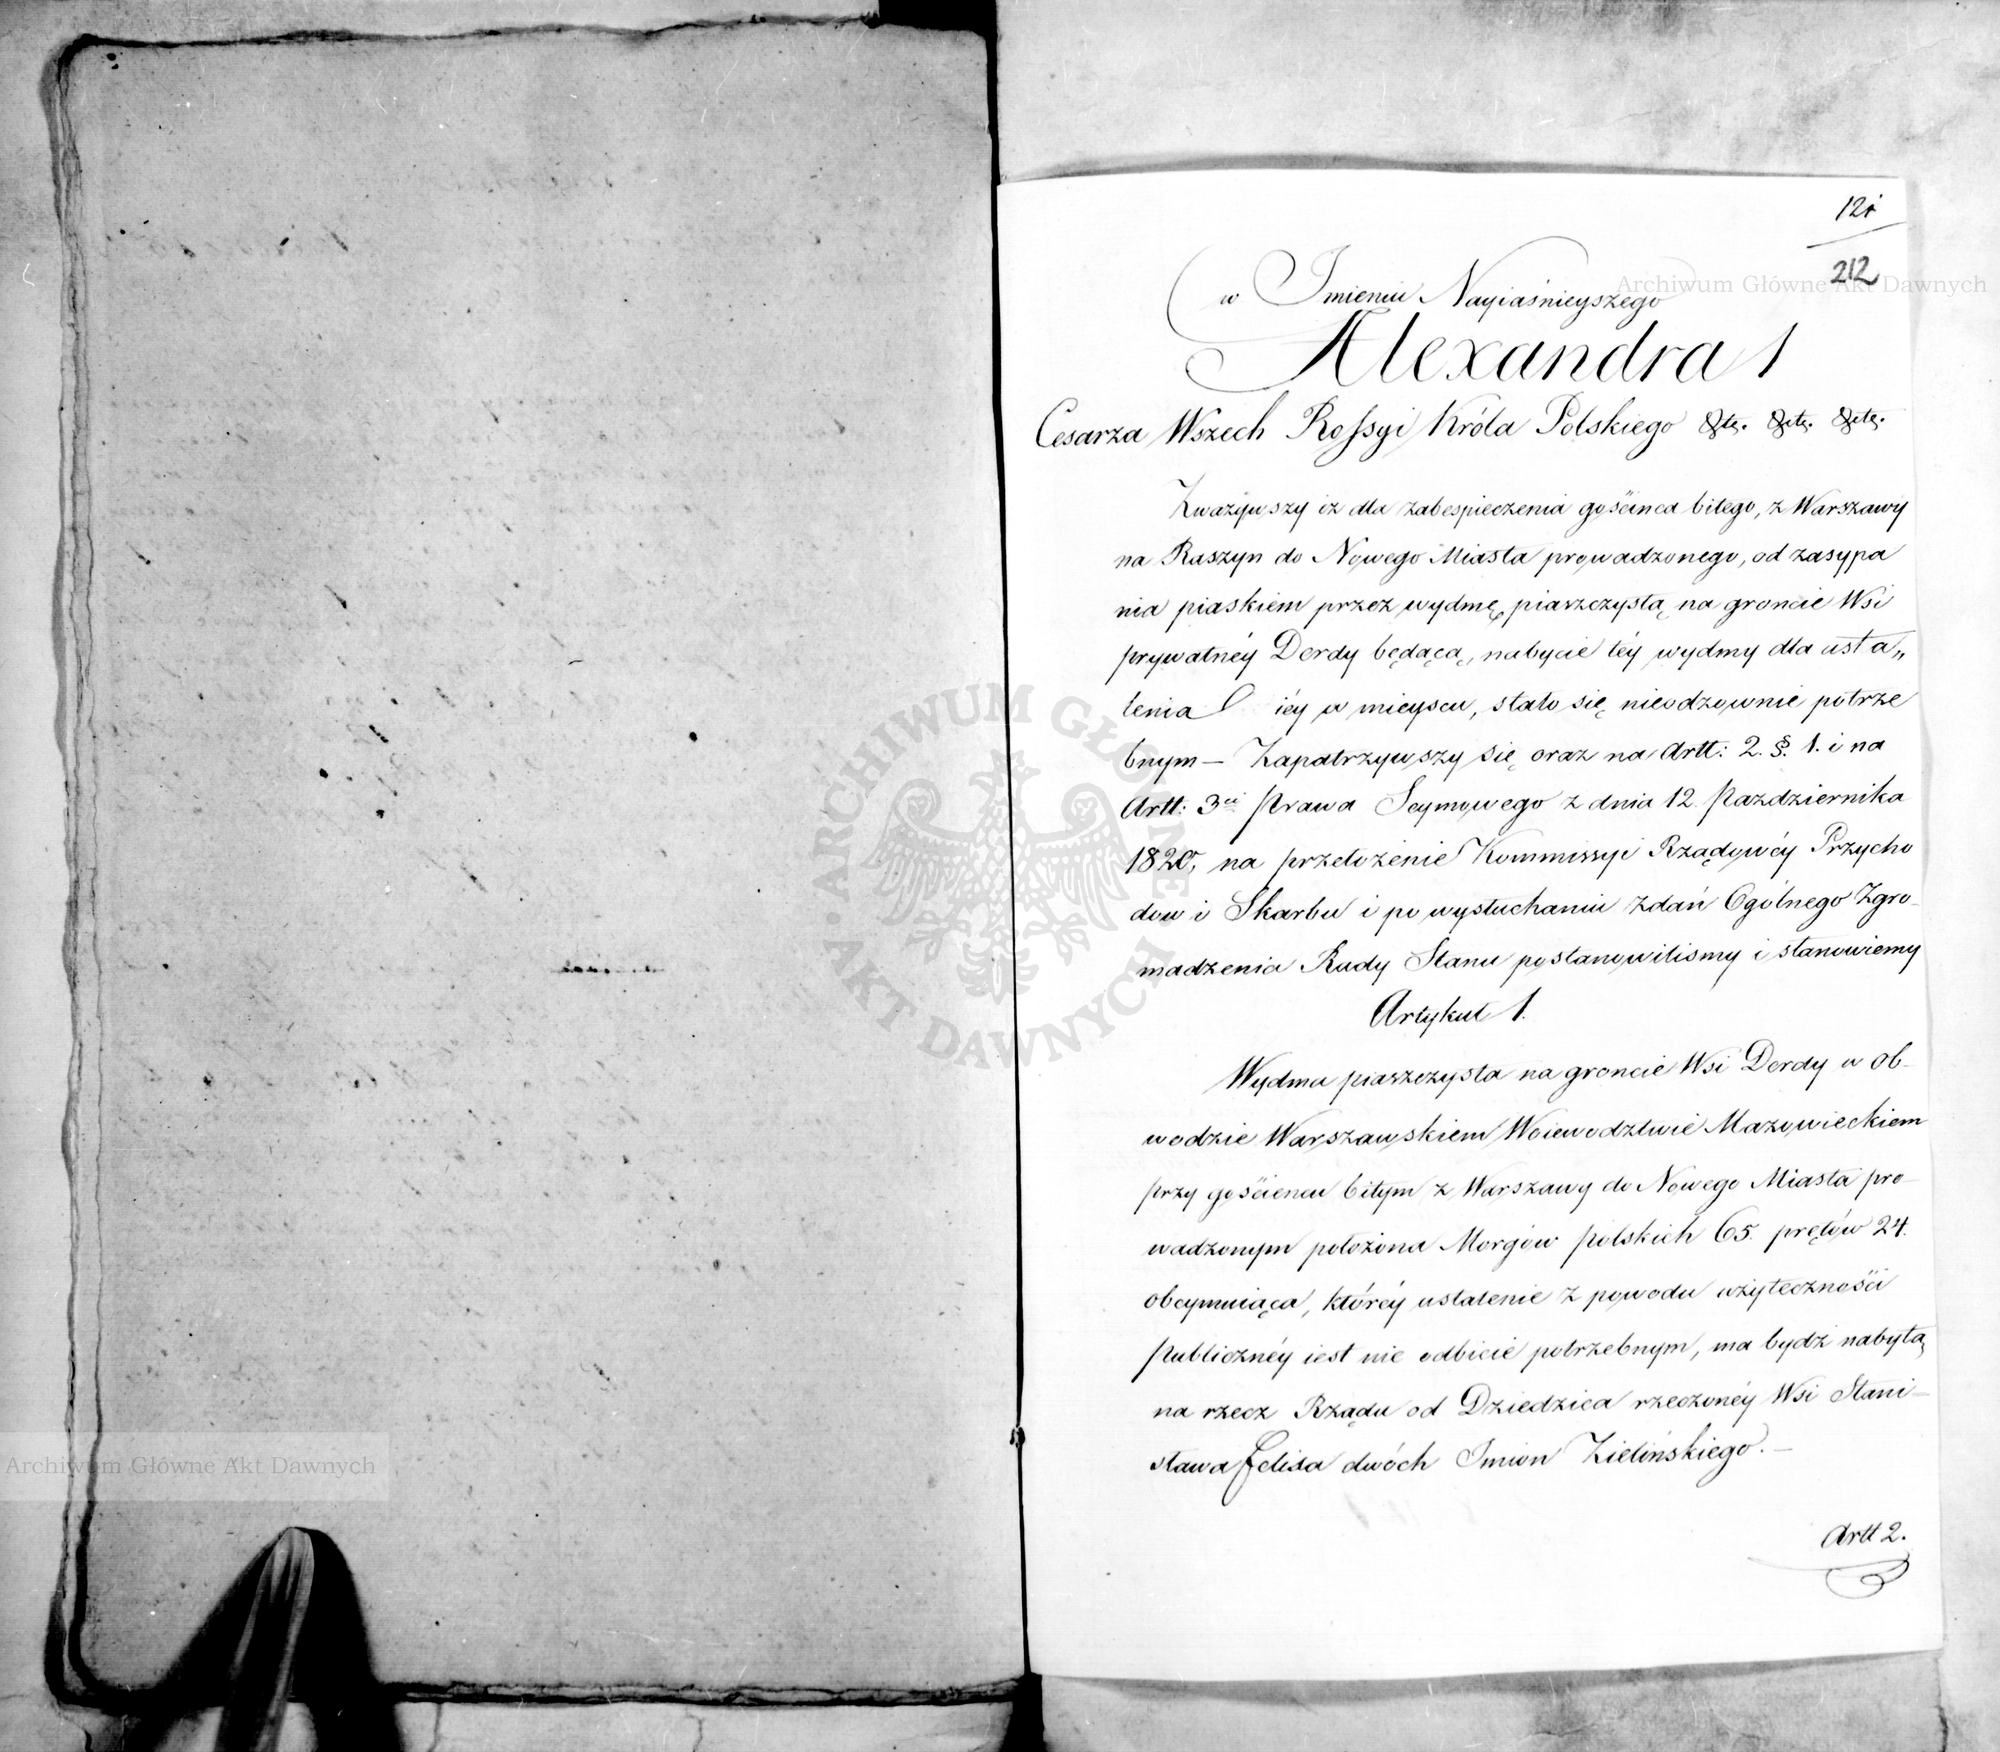 121
212
w Imieniu Nayiaśnieyszego
Alexandra I
Cesarza Wszech Rossyi Króla Polskiego &tc. &tc. &tc.
Zważywszy iż dla zabespieczenia gościnca bitego, z Warszawy
na Raszyn do Nowego Miasta prowadzonego, od zasypa
nia piaskiem przez wydmę piaszczystą na groncie Wsi
prywatnéy Derdy będącą, nabycie téy wydmy dla usta„
lenia iéy w mieyscu, stało się nieodzownie potrze
bnym — Zapatrzywszy się oraz na Artt: 2. §. 1. i na
Artt: 3ci Prawa Seymowego z dnia 12 Pazdziernika
1820, na przełożenie Kommissyi Rządowéy Przycho
dow i Skarbu i po wysłuchaniu zdań Ogólnego Zgro-
madzenia Rady Stanu postanowilismy i stanowiemy
Artykuł 1.
Wydma piaszczysta na groncie Wsi Derdy w Ob-
wodzie Warszawskiem Woiewodztwie Mazowieckiem
przy gościencu bitym z Warszawy do Nowego Miasta pro-
wadzonym położona Morgów polskich 65. prętów 24.
obeymuiąca, któréy ustalenie z powodu użyteczności
publicznéy iest nie odbicie potrzebnym, ma bydź nabytą
na rzecz Rządu od Dziedzica rzeczonéy Wsi Stani-
sława Felixa dwóch Imion Zielińskiego. —
Artt 2.
Archiwum Główne Akt Dawnych
Archiwum Główne Akt Dawnych
ARCHIWUM GŁÓWNE AKT DAWNYCH